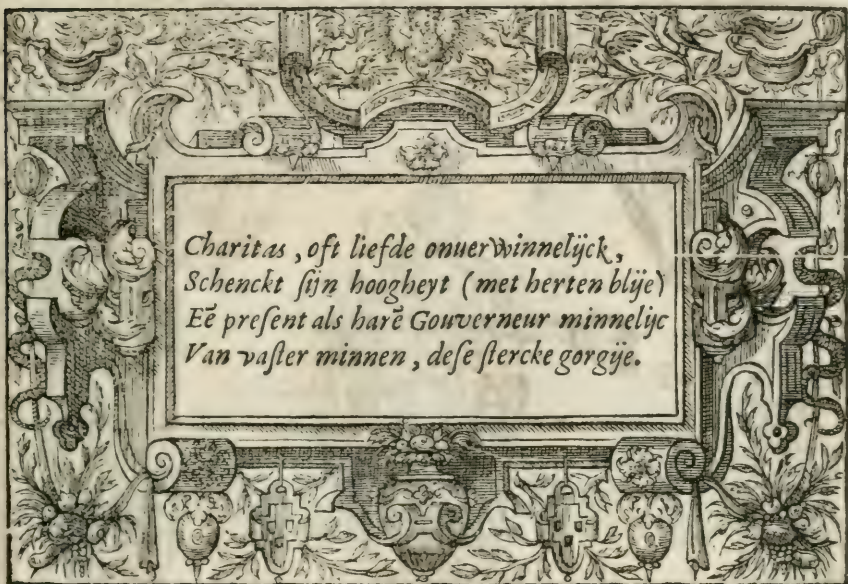 Charitas, oft liefde onuerwinnelijck,
Schenckt ſijn hoogheyt (met herten blije)
Eē preſent als harē Gouverneur minnelijc
Van vaſter minnen, deſe ſtercke gorgije.